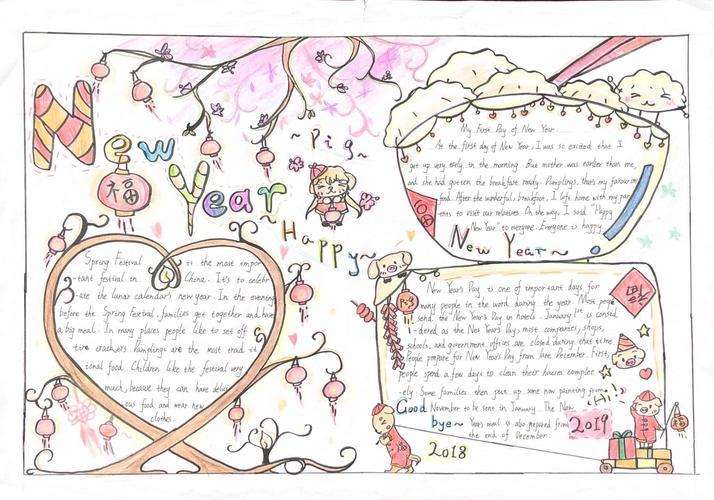 New
Year
福
~Pig~
~Happy~
My First Day of New Year
At the first day of New Year, I was so excited that I
got up very early in the morning. But mother was earlier than me,
and she had gotten the breakfast ready. Dumplings, that's my favourite
food. After the wonderful breakfast, I left home with my par
-ents to visit our relatives. On the way, I said "Happy
New Year" to everyone. Everyone is happy
New Year~
Spring Festival is the most impor
-tant festival in China. It's to celebr
-ate the lunar calendar's new year. In the evening
before the Spring Festival, families get together and have
a big meal. In many places people like to set off
fire crackers. Dumplings are the most tradi ti
ional food. Children like the festival very
much, because they can have delici
ous food and wear new
clothes.
New Year's Day is one of important days for
many people in the word during the year. Most people
send the New Year's Day in hotels. January 1st is consid
-dered as the New Year's Day, most companies, shops,
schools, and government offices are closed during that time.
People prepare for New Year's Day from late December. First,
people spend a few days to clean their houses complet
-ely. Some families then put up some new painting from
November to be seen in January. The New
Years meal is also prepared from
the end of December.
Pig
福
Hi!
Good
bye~
2018
2019
福